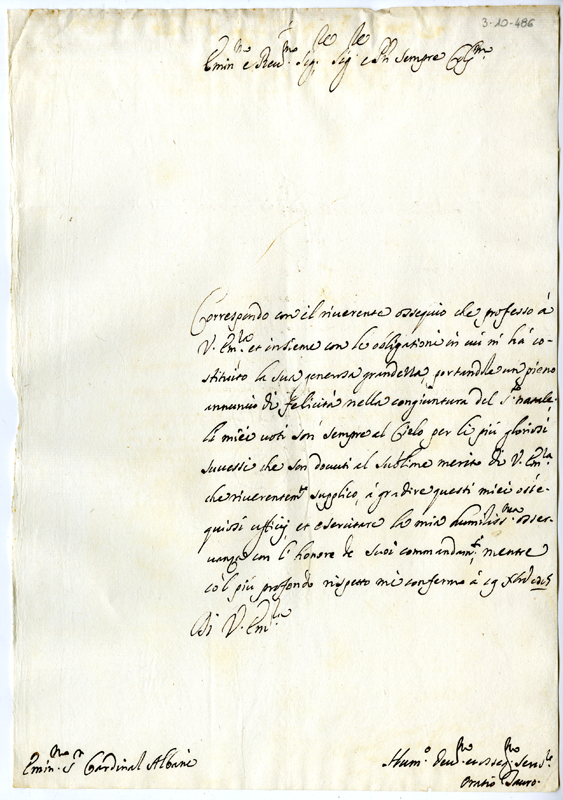 3-10-486
Emin.mo e Reu.mo Sig.re Sig.re e P̃ñ sempre Col.mo
Correspondo con il riuerente ossequio che professo à
V. Em.za et insieme con le obligationi in cui m'hà co-
stituito la sua generosa grandezza, portandole un pieno
annuncio di felicità nella congiuntura del S.to natale.
Li miei uoti son sempre al Cielo per li più gloriosi
successi che son douuti al sublime merito di V. Em.za
che riuerentem.te supplico, à gradire questi miei osse-
quiosi uffitij et esercitare la mia humiliss.ma osser-
uanza con l'honore de suoi commandam.ti mentre
co'l più profondo rispetto mi confermo à 19 Xbre
Di V. Em.za
Emin.mo S.r Cardinal Albani
Hum.o deu.mo et osseq.mo seru.re
Oratio Sauro.